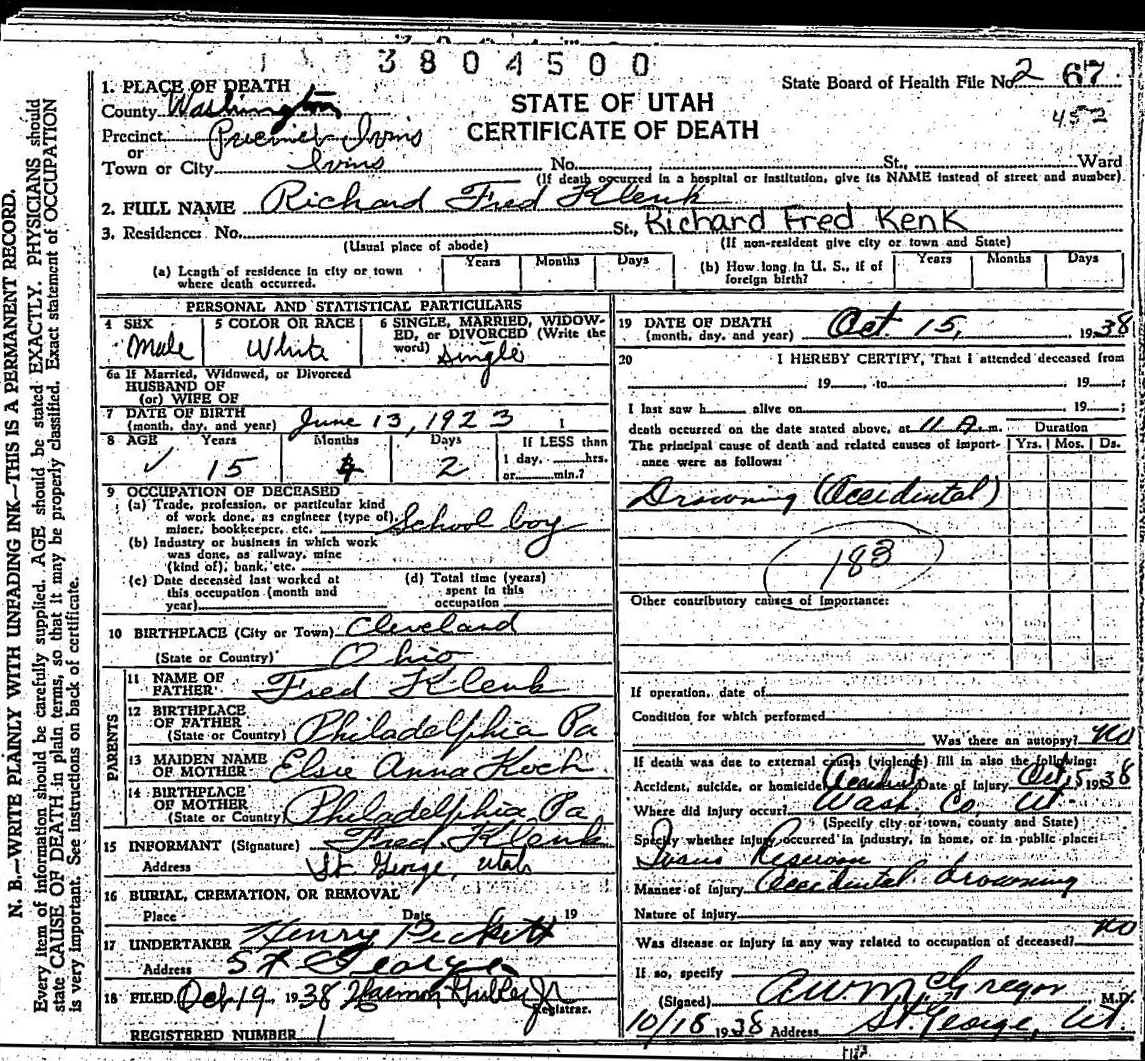 3804500
State Board of Health File No. 2 67
452
STATE OF UTAH
CERTIFICATE OF DEATH
1. PLACE OF DEATH
County Washington
Precinct Precinct Ivins
or
Town or City Ivins No. St., Ward
(If death occurred in a hospital or institution, give its NAME instead of street and number)
2. FULL NAME Richard Fred Klenk
3. Residence: No. St., Richard Fred Kenk
(Usual place of abode) (If non-resident give city or town and State)
(a) Length of residence in city or town where death occurred. Years Months Days
(b) How long in U. S., if of foreign birth? Years Months Days
PERSONAL AND STATISTICAL PARTICULARS
4 SEX Male
5 COLOR OR RACE White
6 SINGLE, MARRIED, WIDOWED, or DIVORCED (Write the word) Single
6a If Married, Widowed, or Divorced
HUSBAND OF
(or) WIFE OF
7 DATE OF BIRTH
(month, day, and year) June 13, 1923
8 AGE Years Months Days If LESS than
15 4 2 1 day, hrs.
or min.?
9 OCCUPATION OF DECEASED
(a) Trade, profession, or particular kind
of work done, as engineer (type of),
miner, bookkeeper, etc. School boy
(b) Industry or business in which work
was done, as railway, mine
(kind of), bank, etc.
(c) Date deceased last worked at
this occupation (month and
year)
(d) Total time (years)
spent in this
occupation
10 BIRTHPLACE (City or Town) Cleveland
(State or Country) Ohio
PARENTS
11 NAME OF
FATHER Fred Klenk
12 BIRTHPLACE
OF FATHER
(State or Country) Philadelphia Pa
13 MAIDEN NAME
OF MOTHER Elsie Anna Koch
14 BIRTHPLACE
OF MOTHER
(State or Country) Philadelphia Pa
15 INFORMANT (Signature) Fred Klenk
Address St. George, Utah
16 BURIAL, CREMATION, OR REMOVAL
Place Date 19
17 UNDERTAKER Henry Pickett
Address St George
18 FILED Oct 19 1938
Registrar.
REGISTERED NUMBER 1
19 DATE OF DEATH
(month, day, and year) Oct. 15, 1938
20 I HEREBY CERTIFY, That I attended deceased from
19 , to 19 ;
I last saw h alive on 19 ;
death occurred on the date stated above, at 11 A. m.
The principal cause of death and related causes of importance were as follows:
Duration
Yrs. Mos. Ds.
Drowning (Accidental)
183
Other contributory causes of importance:
If operation, date of
Condition for which performed
Was there an autopsy? No
If death was due to external causes (violence) fill in also the following:
Accident, suicide, or homicide? Accident Date of injury Oct 15 1938
Where did injury occur? Wash. Co. Ut.
(Specify city or town, county and State)
Specify whether injury occurred in industry, in home, or in public place:
Ivins Reservoir
Manner of injury Accidental drowning
Nature of injury
Was disease or injury in any way related to occupation of deceased? No
If so, specify
(Signed) A W McGregor M.D.
10/18 1938 Address St. George, Ut.
N. B.—WRITE PLAINLY WITH UNFADING INK—THIS IS A PERMANENT RECORD.
Every item of information should be carefully supplied. AGE should be stated EXACTLY. PHYSICIANS should
state CAUSE OF DEATH in plain terms, so that it may be properly classified. Exact statement of OCCUPATION
is very important. See instructions on back of certificate.